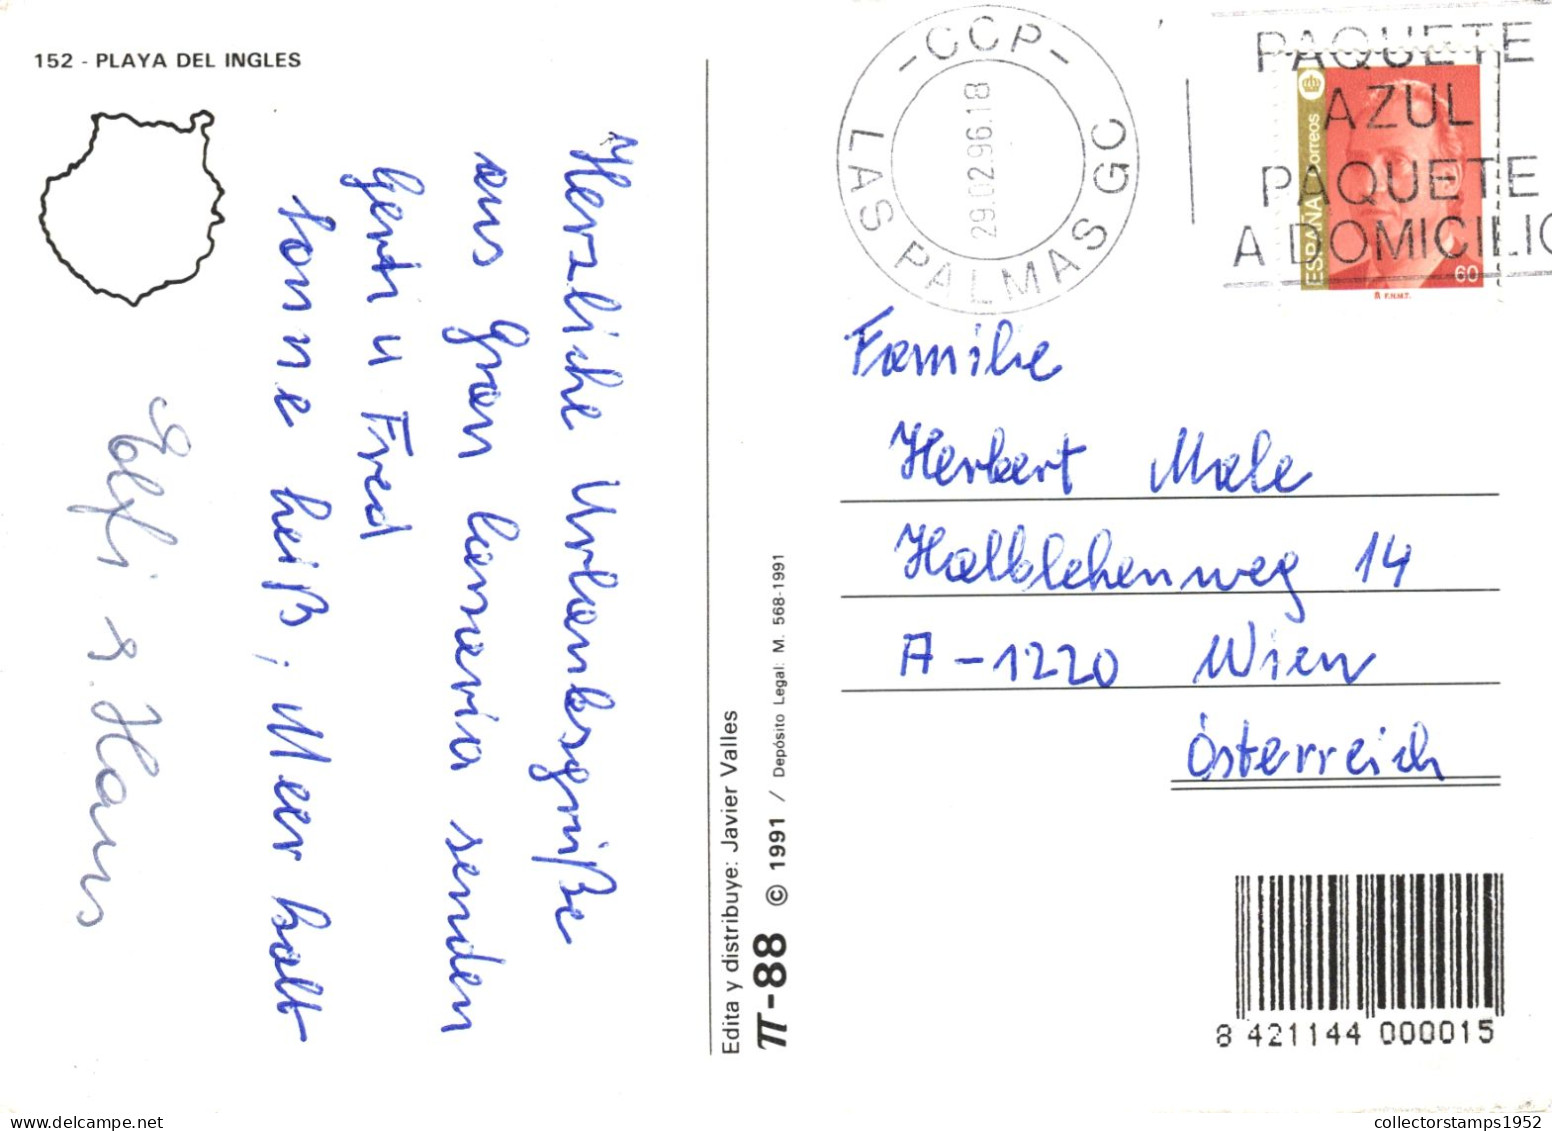 152 - PLAYA DEL INGLES
Herzliche Urlaubsgrüße
aus Gran Canaria senden
Gerti u Fred
Sonne heiß, Meer kalt
Elfi & Hans
Edita y distribuye: Javier Valles
π-88 © 1991 / Depósito Legal: M. 568-1991
-CCP-
LAS PALMAS GC
29.02.96.18
PAQUETE
AZUL
PAQUETE
A DOMICILIO
ESPAÑA Correos
60
F.N.M.T.
Familie
Herbert Male
Halblehenweg 14
A-1220 Wien
Österreich
8 421144 000015
collectorstamps1952